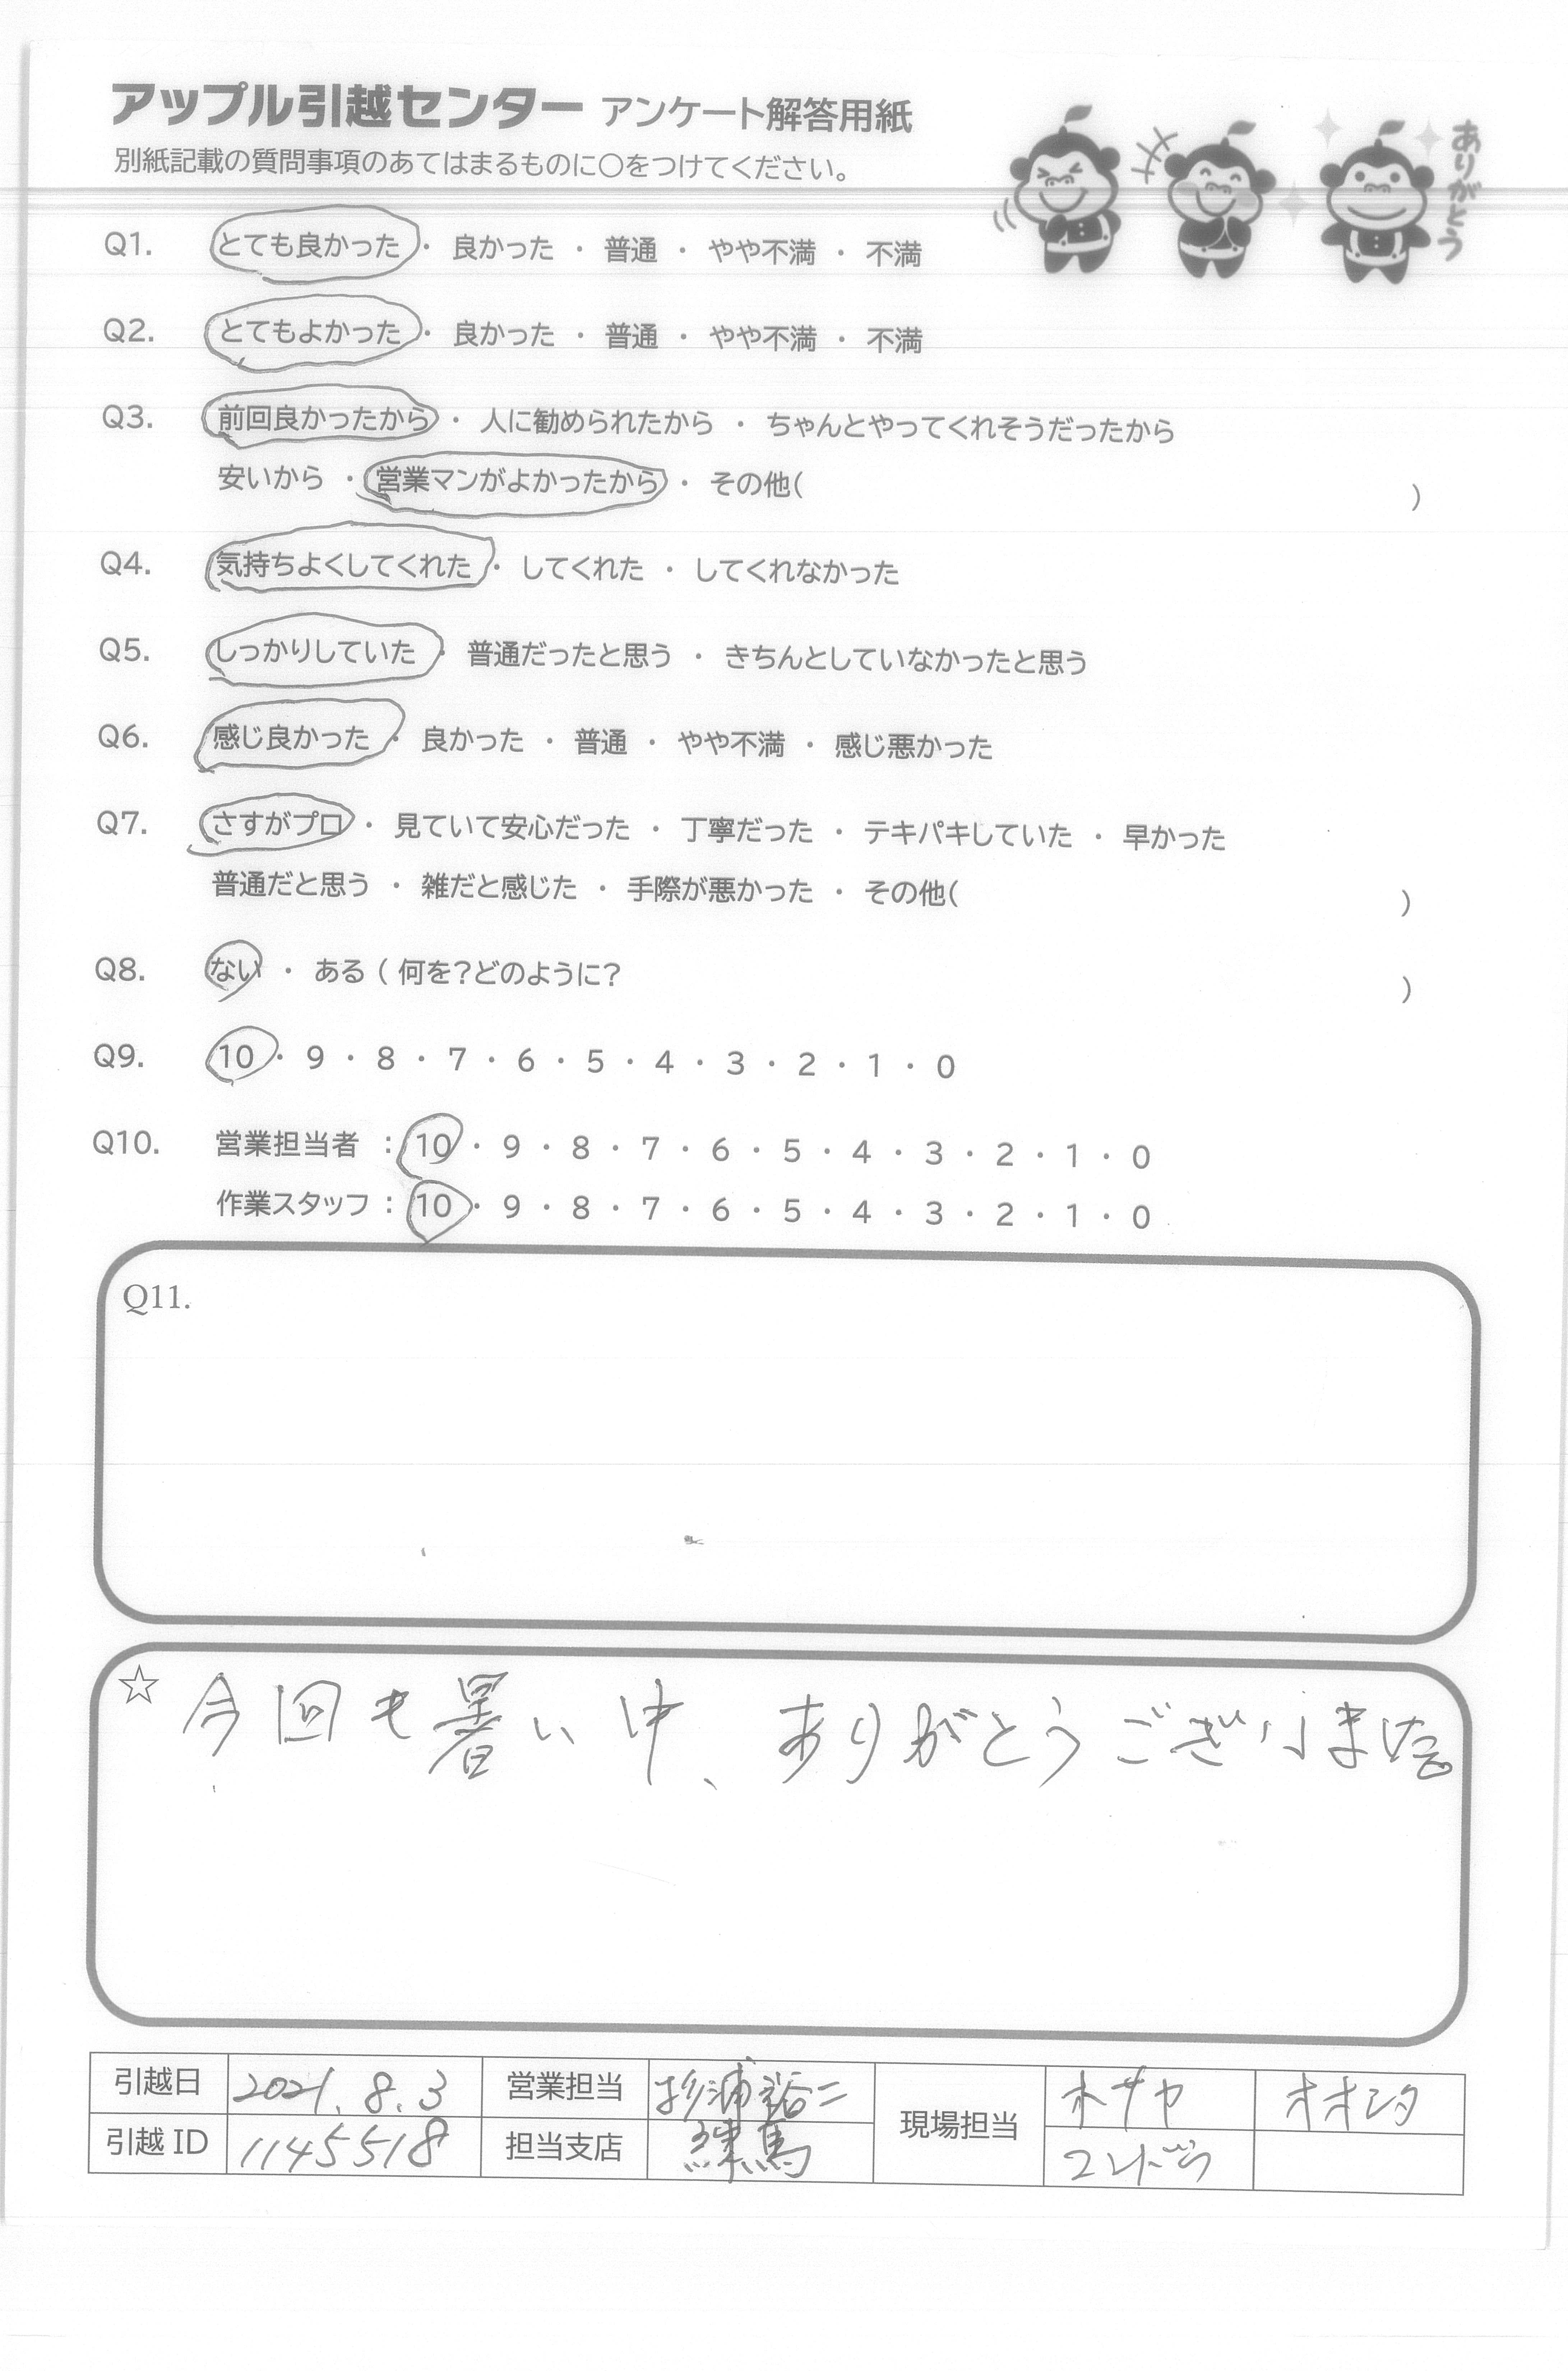 アップル引越センター アンケート解答用紙
別紙記載の質問事項のあてはまるものに○をつけてください。
ありがとう
Q1. とても良かった ・ 良かった ・ 普通 ・ やや不満 ・ 不満
Q2. とてもよかった ・ 良かった ・ 普通 ・ やや不満 ・ 不満
Q3. 前回良かったから ・ 人に勧められたから ・ ちゃんとやってくれそうだったから
安いから ・ 営業マンがよかったから ・ その他( )
Q4. 気持ちよくしてくれた ・ してくれた ・ してくれなかった
Q5. しっかりしていた ・ 普通だったと思う ・ きちんとしていなかったと思う
Q6. 感じ良かった ・ 良かった ・ 普通 ・ やや不満 ・ 感じ悪かった
Q7. さすがプロ ・ 見ていて安心だった ・ 丁寧だった ・ テキパキしていた ・ 早かった
普通だと思う ・ 雑だと感じた ・ 手際が悪かった ・ その他( )
Q8. ない ・ ある ( 何を?どのように? )
Q9. 10 ・ 9 ・ 8 ・ 7 ・ 6 ・ 5 ・ 4 ・ 3 ・ 2 ・ 1 ・ 0
Q10. 営業担当者 : 10 ・ 9 ・ 8 ・ 7 ・ 6 ・ 5 ・ 4 ・ 3 ・ 2 ・ 1 ・ 0
作業スタッフ : 10 ・ 9 ・ 8 ・ 7 ・ 6 ・ 5 ・ 4 ・ 3 ・ 2 ・ 1 ・ 0
Q11.
☆ 今回も暑い中、ありがとうございました。
引越日 2021.8.3 営業担当 杉浦裕二 現場担当
引越ID 1145518 担当支店 練馬